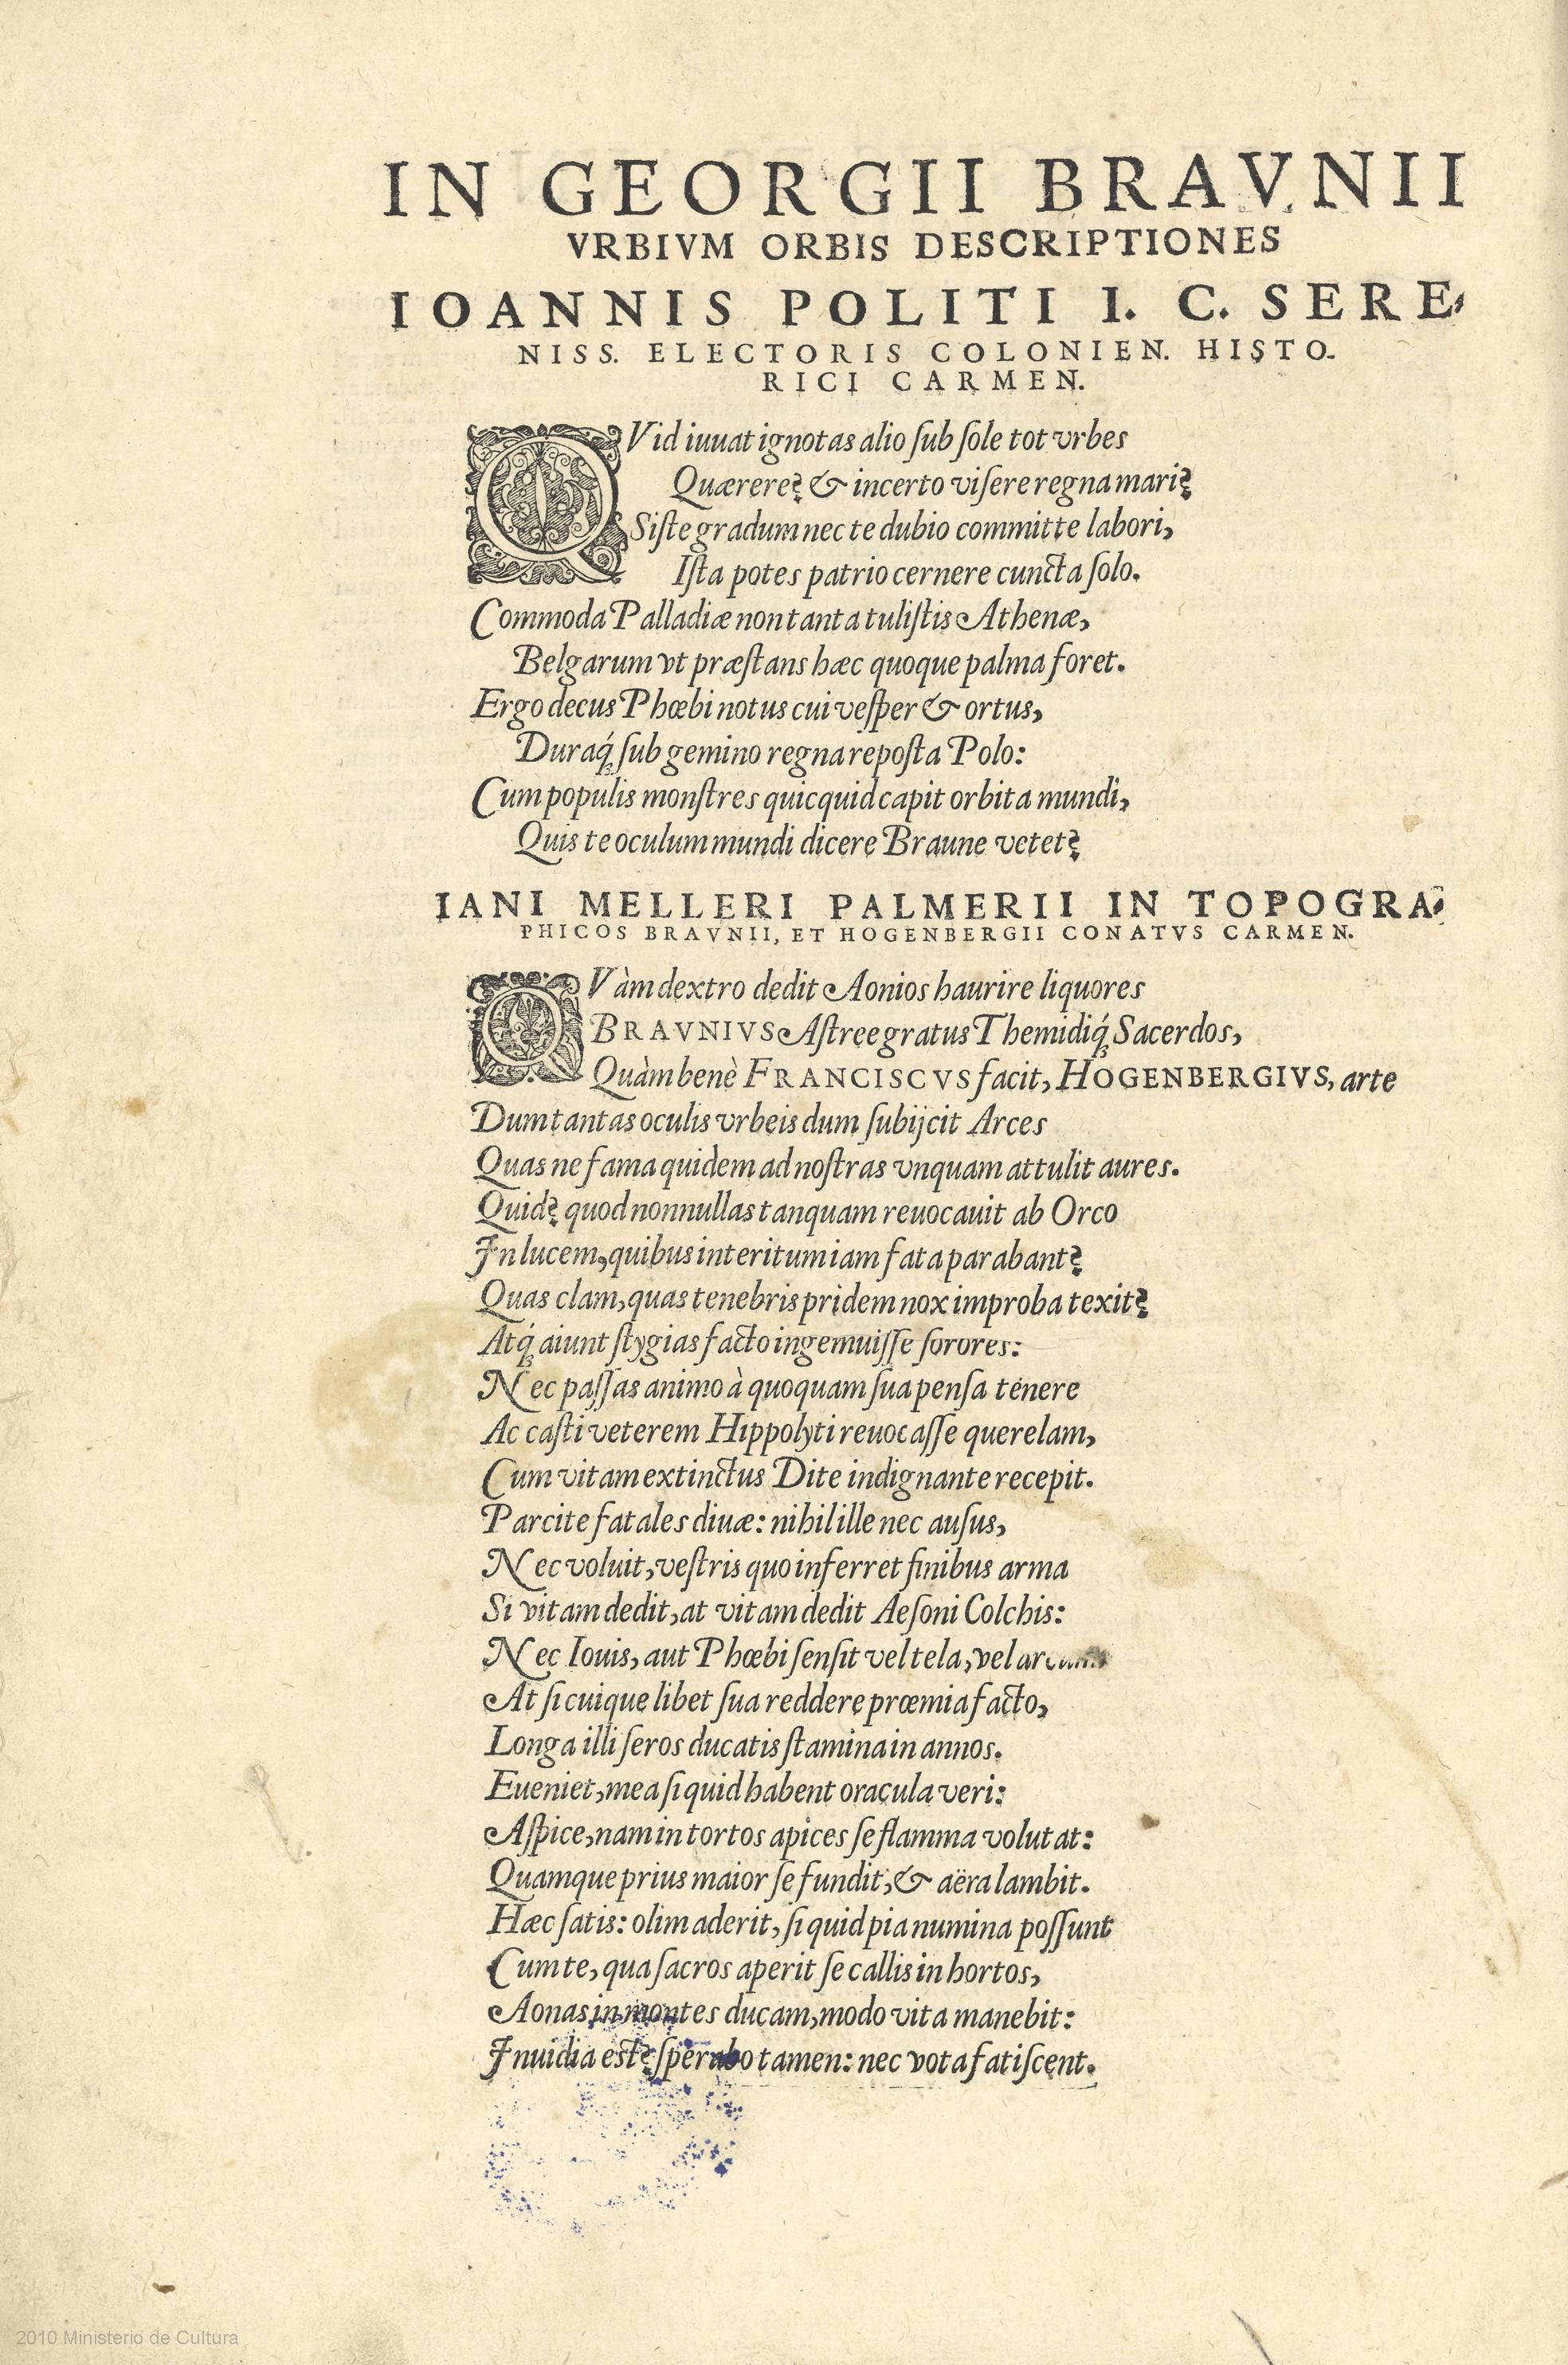 IN GEORGII BRAVNII
VRBIVM ORBIS DESCRIPTIONES
IOANNIS POLITI I. C. SERE-
NISS. ELECTORIS COLONIEN. HISTO-
RICI CARMEN.
QVid iuuat ignotas alio ſub ſole tot vrbes
Quærere? & incerto viſere regna mari?
Siſte gradum nec te dubio committe labori,
Iſta potes patrio cernere cuncta ſolo.
Commoda Palladiæ non tanta tuliſtis Athenæ,
Belgarum vt præſtans hæc quoque palma foret.
Ergo decus Phœbi notus cui veſper & ortus,
Duraq́; ſub gemino regna repoſta Polo:
Cum populis monſtres quicquid capit orbita mundi,
Quis te oculum mundi dicere Braune vetet?
IANI MELLERI PALMERII IN TOPOGRA-
PHICOS BRAVNII, ET HOGENBERGII CONATVS CARMEN.
QVàm dextro dedit Aonios haurire liquores
BRAVNIVS Aſtree gratus Themidiq́; Sacerdos,
Quàm benè FRANCISCVS facit, HOGENBERGIVS, arte
Dum tantas oculis vrbeis dum ſubijcit Arces
Quas ne fama quidem ad noſtras vnquam attulit aures.
Quid? quod nonnullas tanquam reuocauit ab Orco
In lucem, quibus interitum iam fata parabant?
Quas clam, quas tenebris pridem nox improba texit?
Atq́; aiunt ſtygias facto ingemuiſſe ſorores:
Nec paſſas animo à quoquam ſua penſa tenere
Ac caſti veterem Hippolyti reuocaſſe querelam,
Cum vitam extinctus Dite indignante recepit.
Parcite fatales diuæ: nihil ille nec auſus,
Nec voluit, veſtris quo inferret finibus arma
Si vitam dedit, at vitam dedit Aeſoni Colchis:
Nec Iouis, aut Phœbi ſenſit vel tela, vel
At ſi cuique libet ſua reddere prœmia facto,
Longa illi ſeros ducatis ſtamina in annos.
Eueniet, mea ſi quid habent oracula veri:
Aſpice, nam in tortos apices ſe flamma volutat:
Quamque prius maior ſe fundit, & aëra lambit.
Hæc ſatis: olim aderit, ſi quid pia numina poſſunt
Cum te, qua ſacros aperit ſe callis in hortos,
Aonas in montes ducam, modo vita manebit:
Inuidia est? ſperabo tamen: nec vota fatiſcent.
2010 Ministerio de Cultura